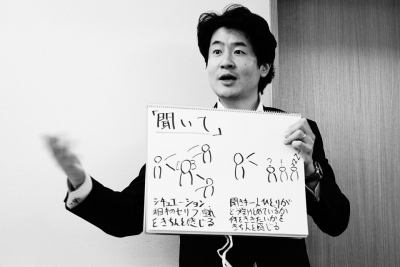 「聞いて」
シチュエーション
相手のセリフ
をきちんと感じる
聞き手一人ひとりが
どう受けとめているか
何をききたいかを
きちんと感じる